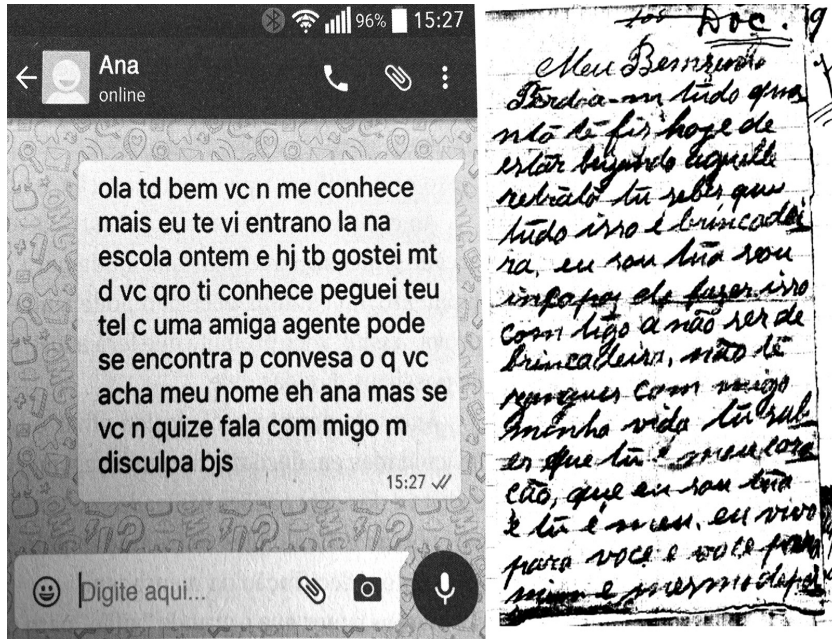 96% 15:27
Ana
online
ola td bem vc n me conhece
mais eu te vi entrano la na
escola ontem e hj tb gostei mt
d vc qro ti conhece peguei teu
tel c uma amiga agente pode
se encontra p convesa o q vc
acha meu nome eh ana mas se
vc n quize fala com migo m
disculpa bjs
15:27
Digite aqui...
Doc. 9
Meu Bemzinho
Perdoa-m tudo qua
nto te fiz hoje de
estar beijando aquelle
retrato tu sabes que
tudo isso é brincadei
ra, eu sou tua sou
incapaz de fazer isso
com tigo a não ser de
brincadeira, não te
zangues com migo
minha vida tu sab
es que tu é meu cora
ção, que eu sou tua
e tu é meu, eu vivo
para voce e voce para
mim e mesmo depoi